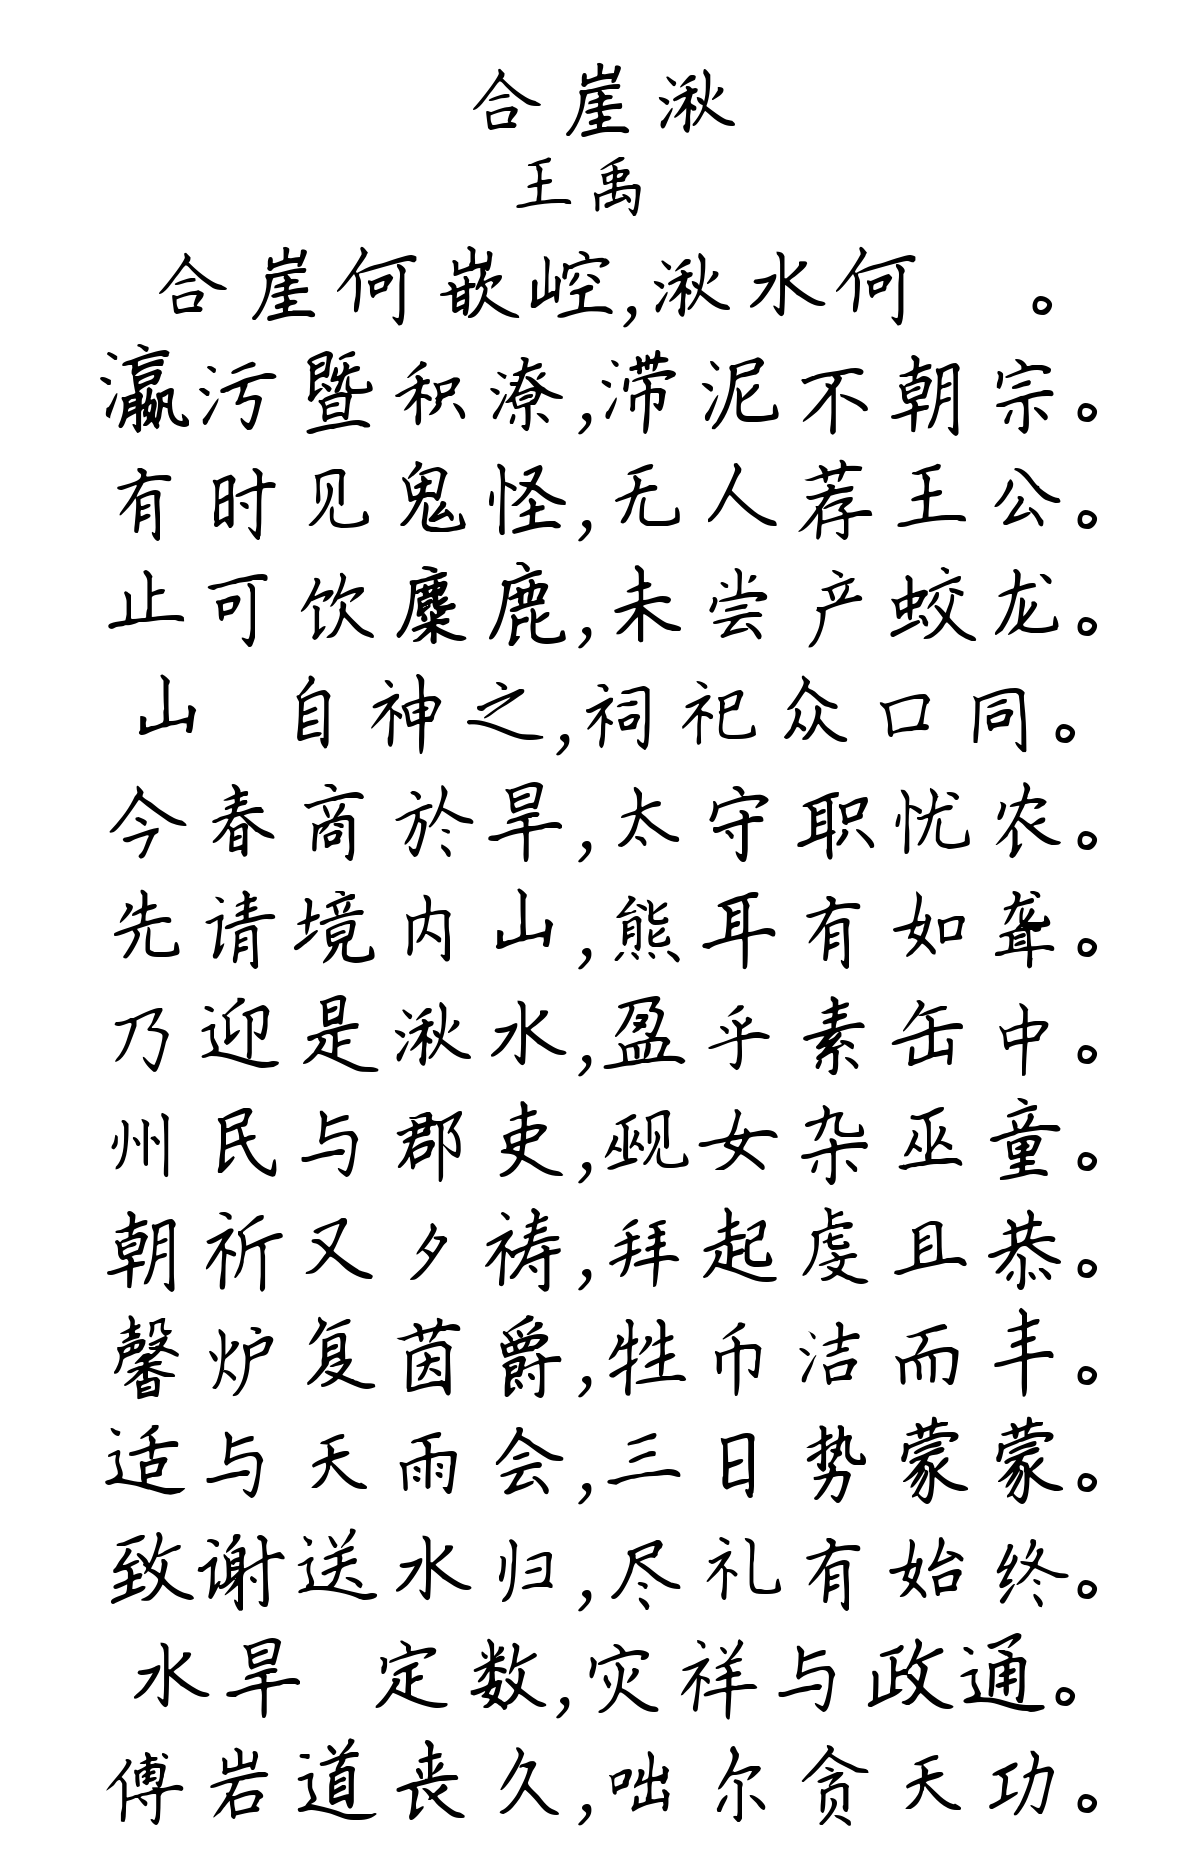 合崖湫
王禹
合崖何嵌崆,湫水何 。
瀛污暨积潦,滞泥不朝宗。
有时见鬼怪,无人荐王公。
止可饮麋鹿,未尝产蛟龙。
山 自神之,祠祀众口同。
今春商於旱,太守职忧农。
先请境内山,熊耳有如聋。
乃迎是湫水,盈乎素缶中。
州民与郡吏,觋女杂巫童。
朝祈又夕祷,拜起虔且恭。
馨炉复茵爵,牲币洁而丰。
适与天雨会,三日势蒙蒙。
致谢送水归,尽礼有始终。
水旱 定数,灾祥与政通。
傅岩道丧久,咄尔贪天功。